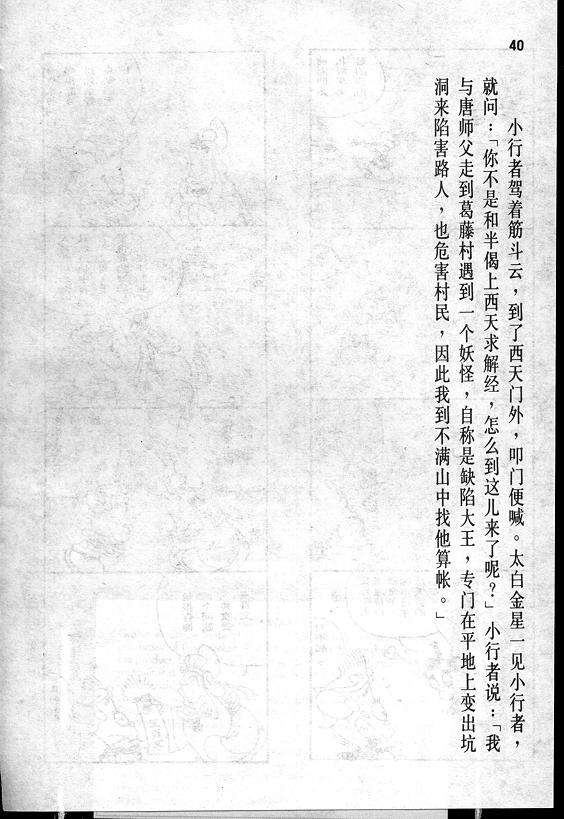 40
小行者驾着筋斗云，到了西天门外，叩门便喊。太白金星一见小行者，
就问：「你不是和半偈上西天求解经，怎么到这儿来了呢？」小行者说：「我
与唐师父走到葛藤村遇到一个妖怪，自称是缺陷大王，专门在平地上变出坑
洞来陷害路人，也危害村民，因此我到不满山中找他算帐。」